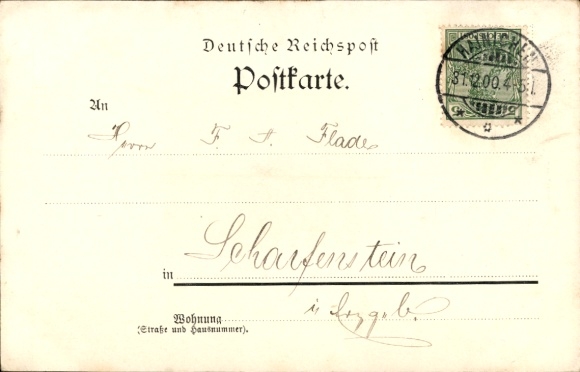 Deutsche Reichspost
Postkarte.
An
Herrn F. A. Flade
Scharfenstein
in
i. Erzgeb.
Wohnung
(Straße und Hausnummer).
31.12.00.4-5
5